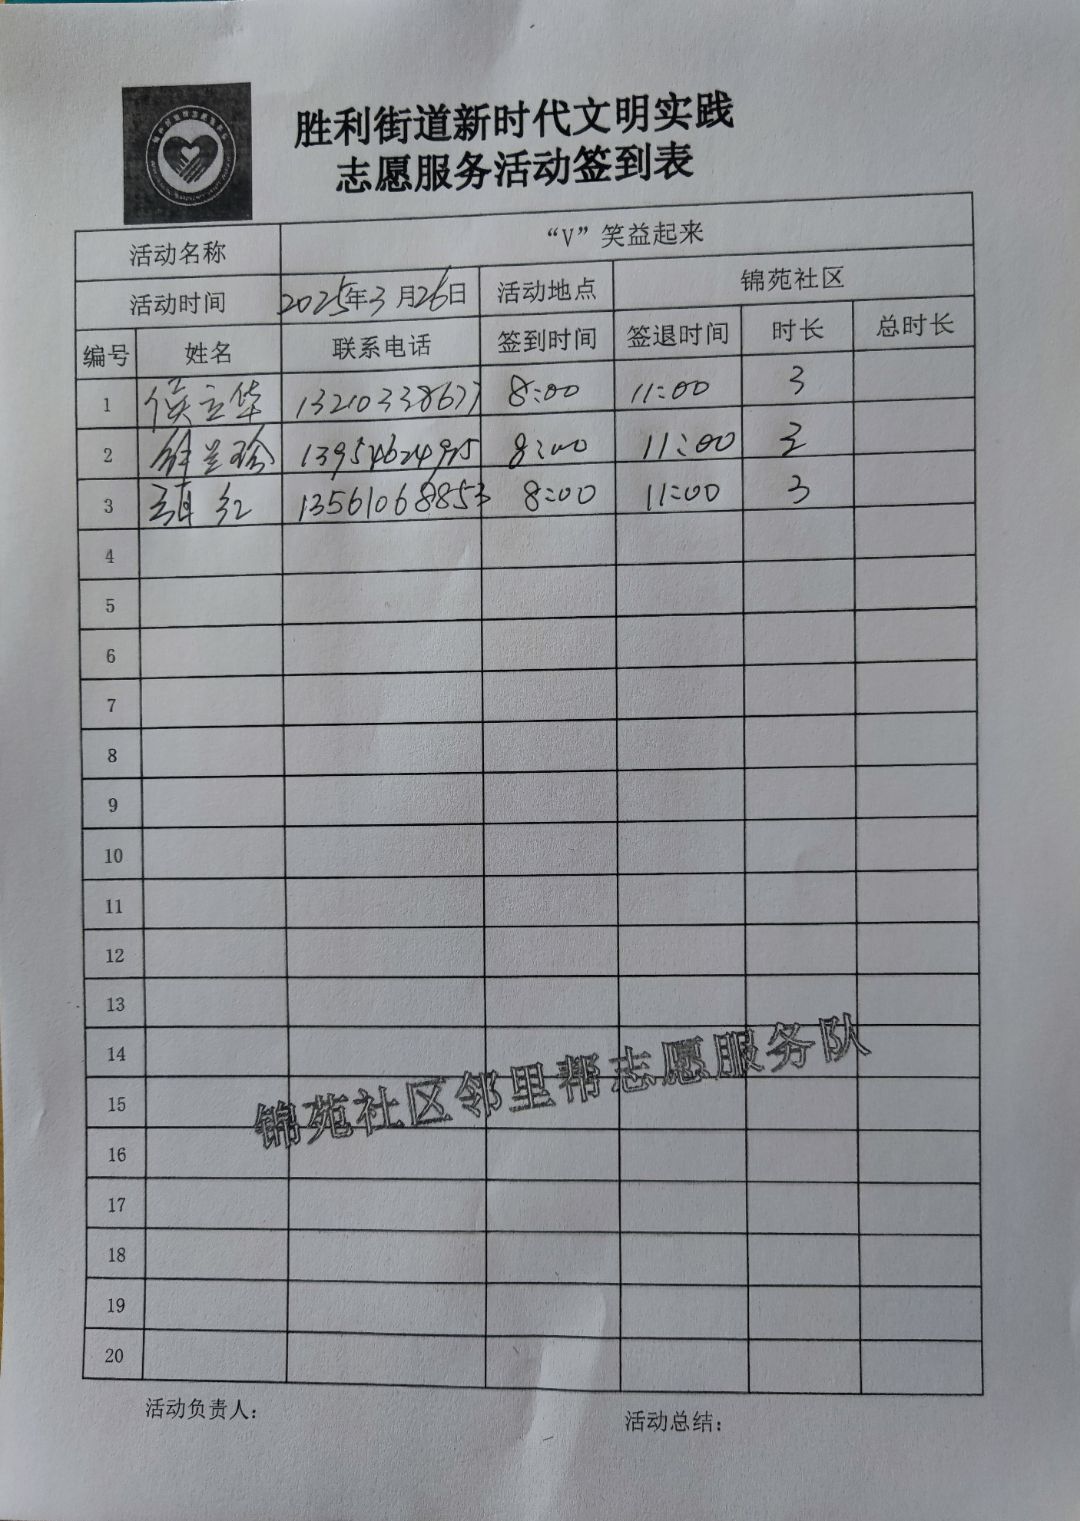 胜利街道新时代文明实践
志愿服务活动签到表
活动名称 “V”笑益起来
活动时间 2025年3月26日 活动地点 锦苑社区
编号 姓名 联系电话 签到时间 签退时间 时长 总时长
1 侯立华 13210338677 8:00 11:00 3
2 徐兰珍 8:00 11:00 3
3 红 13561068853 8:00 11:00 3
4
5
6
7
8
9
10
11
12
13
14
15
锦苑社区邻里帮志愿服务队
16
17
18
19
20
活动负责人： 活动总结：